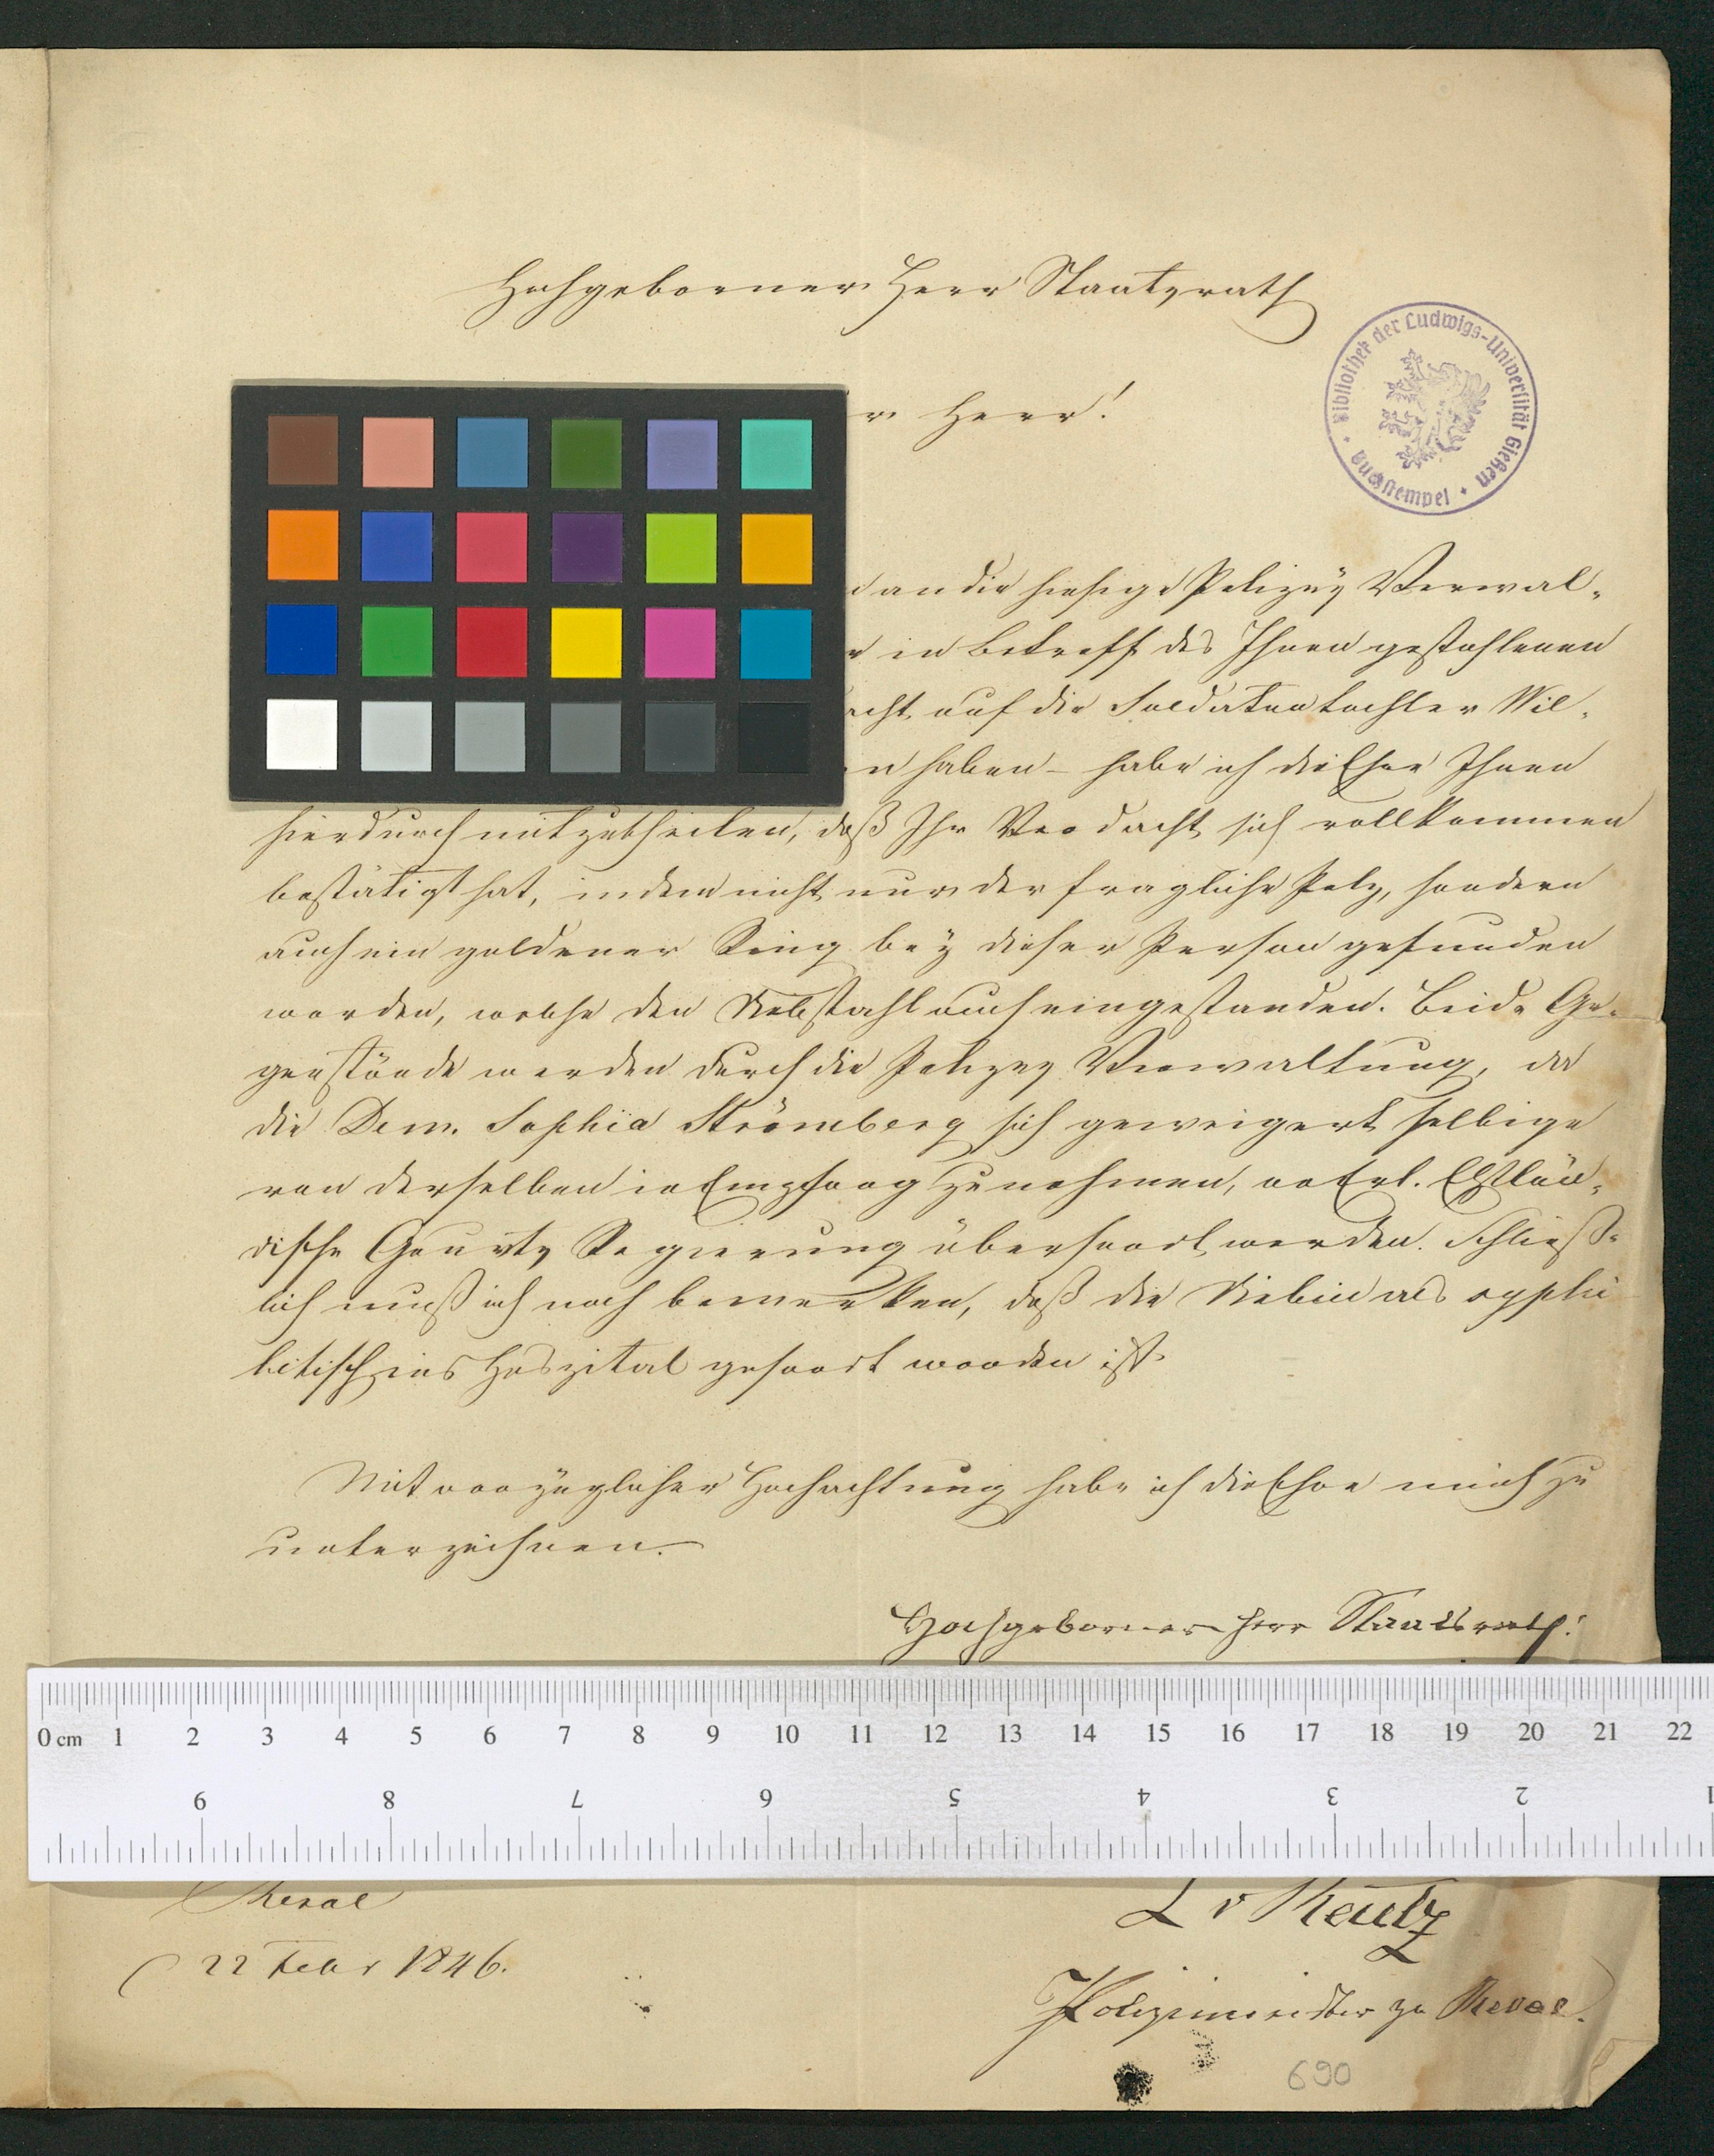 Hochgeborner Herr Staatsrath
Herr!
Bibliothek der Ludwigs-Universität Gießen
Buchstempel
an die hiesige Polizey Verwal-
in Betreff des Ihnen gestohlenen
auf die Soldatentochter Wil-
haben – habe ich die Ehre Ihnen
hierdurch mitzutheilen, daß Ihr Verdacht sich vollkommen
bestätigt hat, indem nicht nur der fragliche Pelz, sondern
auch ein goldener Ring bey dieser Person gefunden
worden, welche den Diebstahl auch eingestanden. Beide Ge-
genstände werden durch die Polizey Verwaltung, da
die Dem. Sophia Strömberg sich geweigert selbige
von derselben in Empfang zu nehmen, an Erl. Ehstlän-
dische Gouvts Regierung übersandt werden. Schließ-
lich muß ich noch bemerken, daß die Diebin als syphi
litisch ins Hospital gesandt worden ist.
Mit vorzüglicher Hochachtung habe ich die Ehre mich zu
unterzeichnen.
Hochgeborner Herr Staatsrath!
0 cm 1 2 3 4 5 6 7 8 9 10 11 12 13 14 15 16 17 18 19 20 21 22
9 8 7 6 5 4 3 2 1
Reval
22 Febr 1846.
L v Reutz
Polizeimeister zu Reval.
690